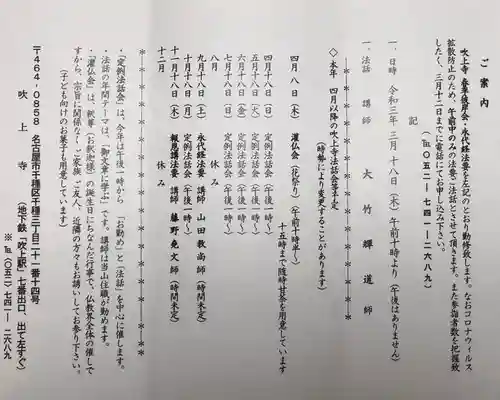 ご案内
吹上寺 春季彼岸会・永代経法要を左記のとおり勤修致します。なおコロナウィルス
拡散防止のため、午前中のみの法要・法話とさせて頂きます。また参詣者数を把握致
したく、三月十二日までに電話にてお申し込み下さい。
(℡〇五二-七四一-二六八九)
記
一、日時 令和三年三月十八日(木)午前十時より(午後はありません)
一、法話 講師 大竹輝道師
◇本年 四月以降の吹上寺法話会等予定
(時勢により変更することがあります)
四月八日(木) 灌仏会(花祭り)(午前十時半~)
十五時まで随時甘茶を用意しています
四月十八日(日) 定例法話会(午後一時~)
五月十八日(火) 定例法話会(午後一時~)
六月十八日(金) 定例法話会(午後一時~)
七月十八日(日) 定例法話会(午後一時~)
八月 休み
九月十八日(土) 永代経法要 講師 山田教尚師(時間未定)
十月十八日(月) 定例法話会(午後一時~)
十一月十八日(木) 報恩講法要 講師 藤野堯文師(時間未定)
十二月 休み
・「定例法話会」は、今年は午後一時から 「お勤め」と「法話」を中心に催します。
・法話の年間テーマは、「御文章に学ぶ」です。講師は当山住職が勤めます。
・「灌仏会」は、釈尊(お釈迦様)の誕生日にちなんだ行事で、仏教界全体の催しで
すから、宗旨に関係なく、ご家族、ご友人、近隣の方々もお誘いしてお参り下さい。
(子ども向けのお菓子も用意しています)
〒464-0858 名古屋市千種区千種三丁目二十一番十四号
吹上寺 (地下鉄「吹上駅」七番出口、出て左すぐ)
※℡(〇五二)七四一-二六八九